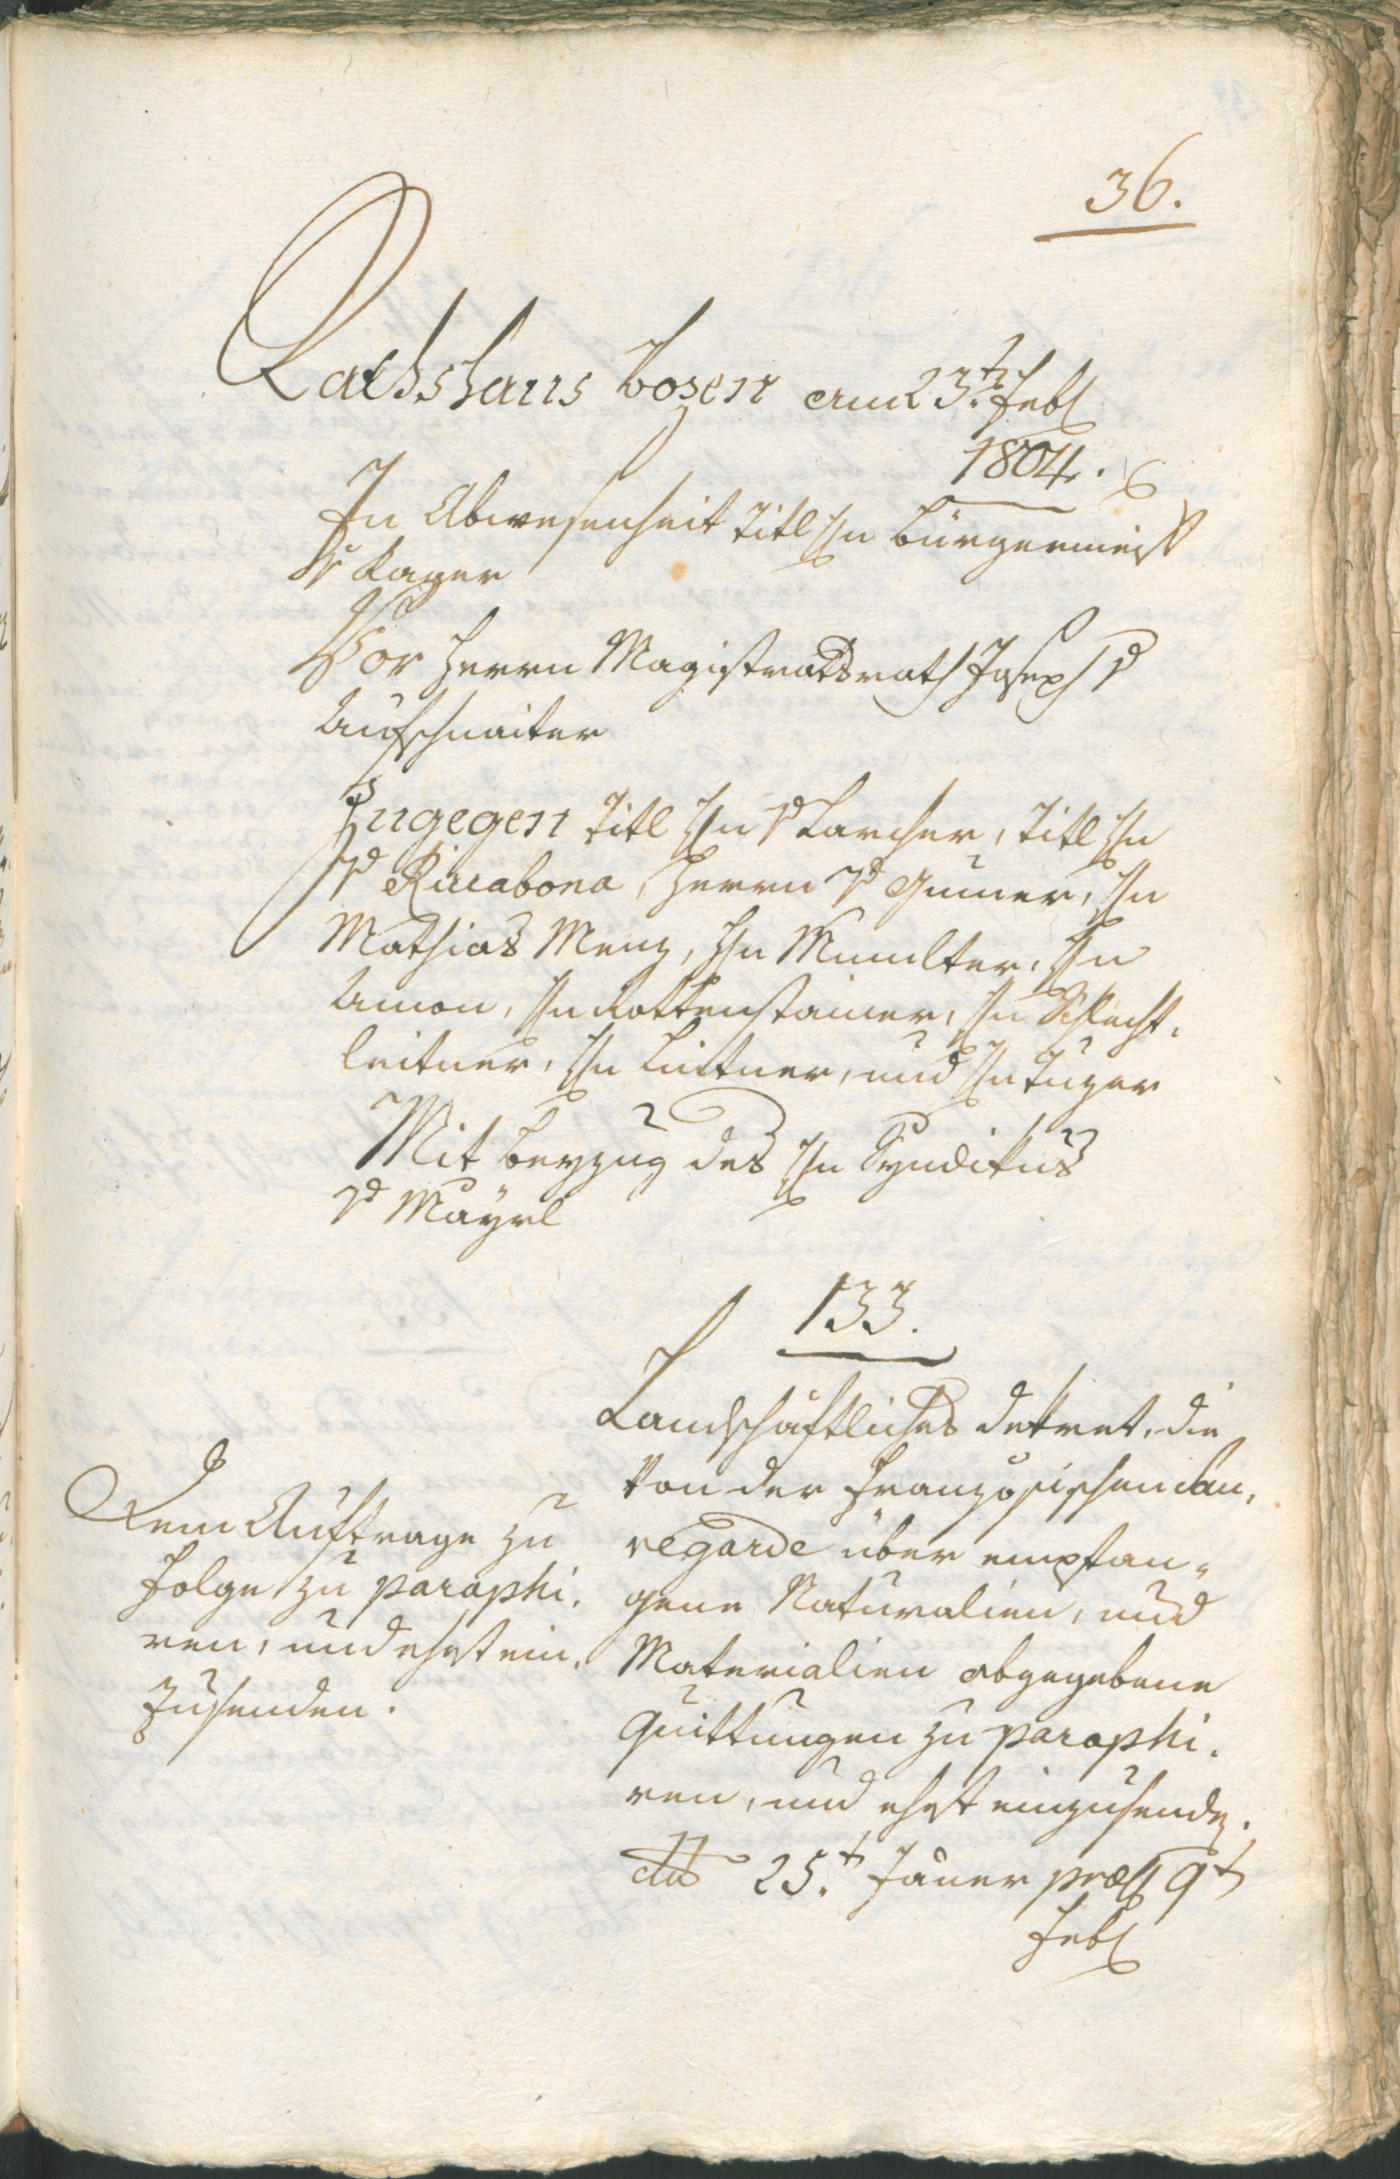 36.
Rathshaus Bozen am 23.t Febr
1804.
In Abwesenheit Titl Hn Bürgermeist
v Kager
Vor Herrn Magistratsrath Joseph v
Aufschnaiter
Zugegen Titl Hn v Larcher, Titl Hn
v Riccabona, Herrn v Gumer, Hn
Mathias Menz, Hn Mumelter, Hn
Amon, Hn Rottensteiner, Hn Schlecht-
leitner, Hn Lintner, und Hn Tuzer
Mit Beyzug des Hn Syndikus
v Mayrl
133.
Landschäftliches Dekret, die
von der französischen Sau,
regarde über empfan-
gene Naturalien, und
Materialien abgegebene
Quittungen zu paraphi,
ren, und ehest einzusenden.
dto 25.t Jäner præs 9t
Febr
Dem Auftrage zu
folge zu paraphi,
ren, und ehest ein,
zusenden.